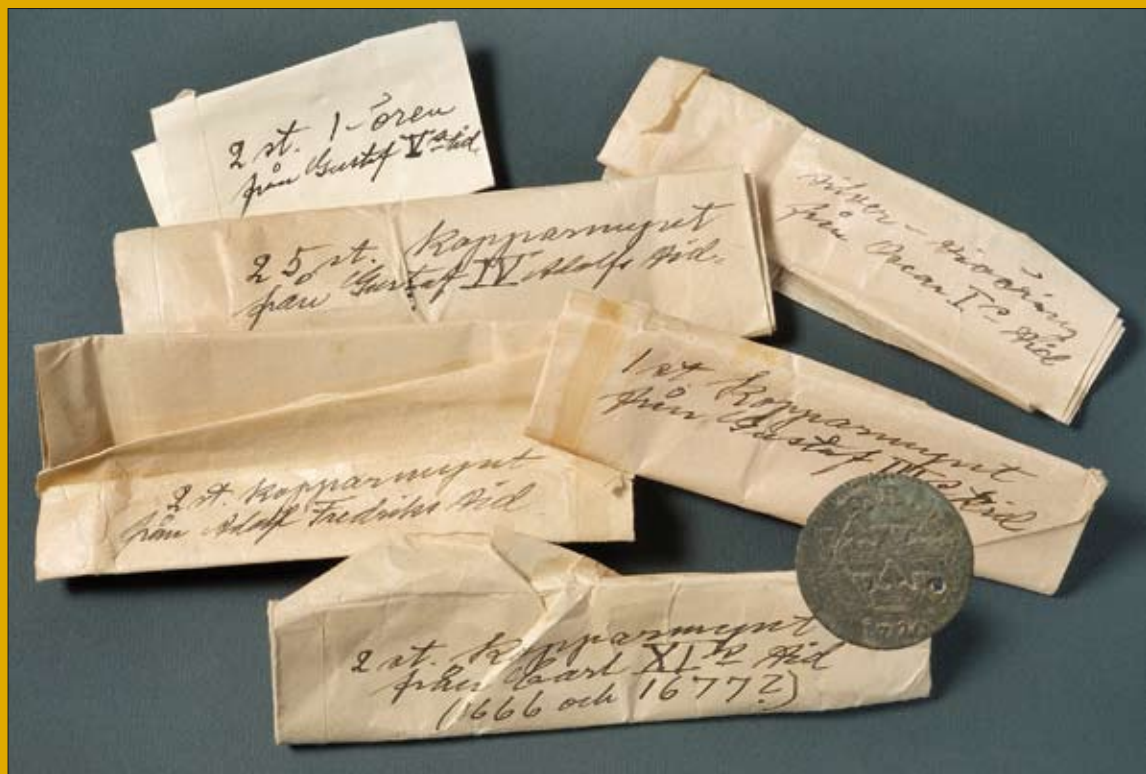 2 st. 1-ören
från Gustaf Vs tid.
silver-
från Oscar Is tid
25 st. Kopparmynt
från Gustaf IV Adolfs tid.
1 st Kopparmynt
från Gustaf tid
2 st. Kopparmynt
från Adolf Fredriks tid.
2 st. Kopparmynt
från Carl XIs tid
(1666 och 1677?)